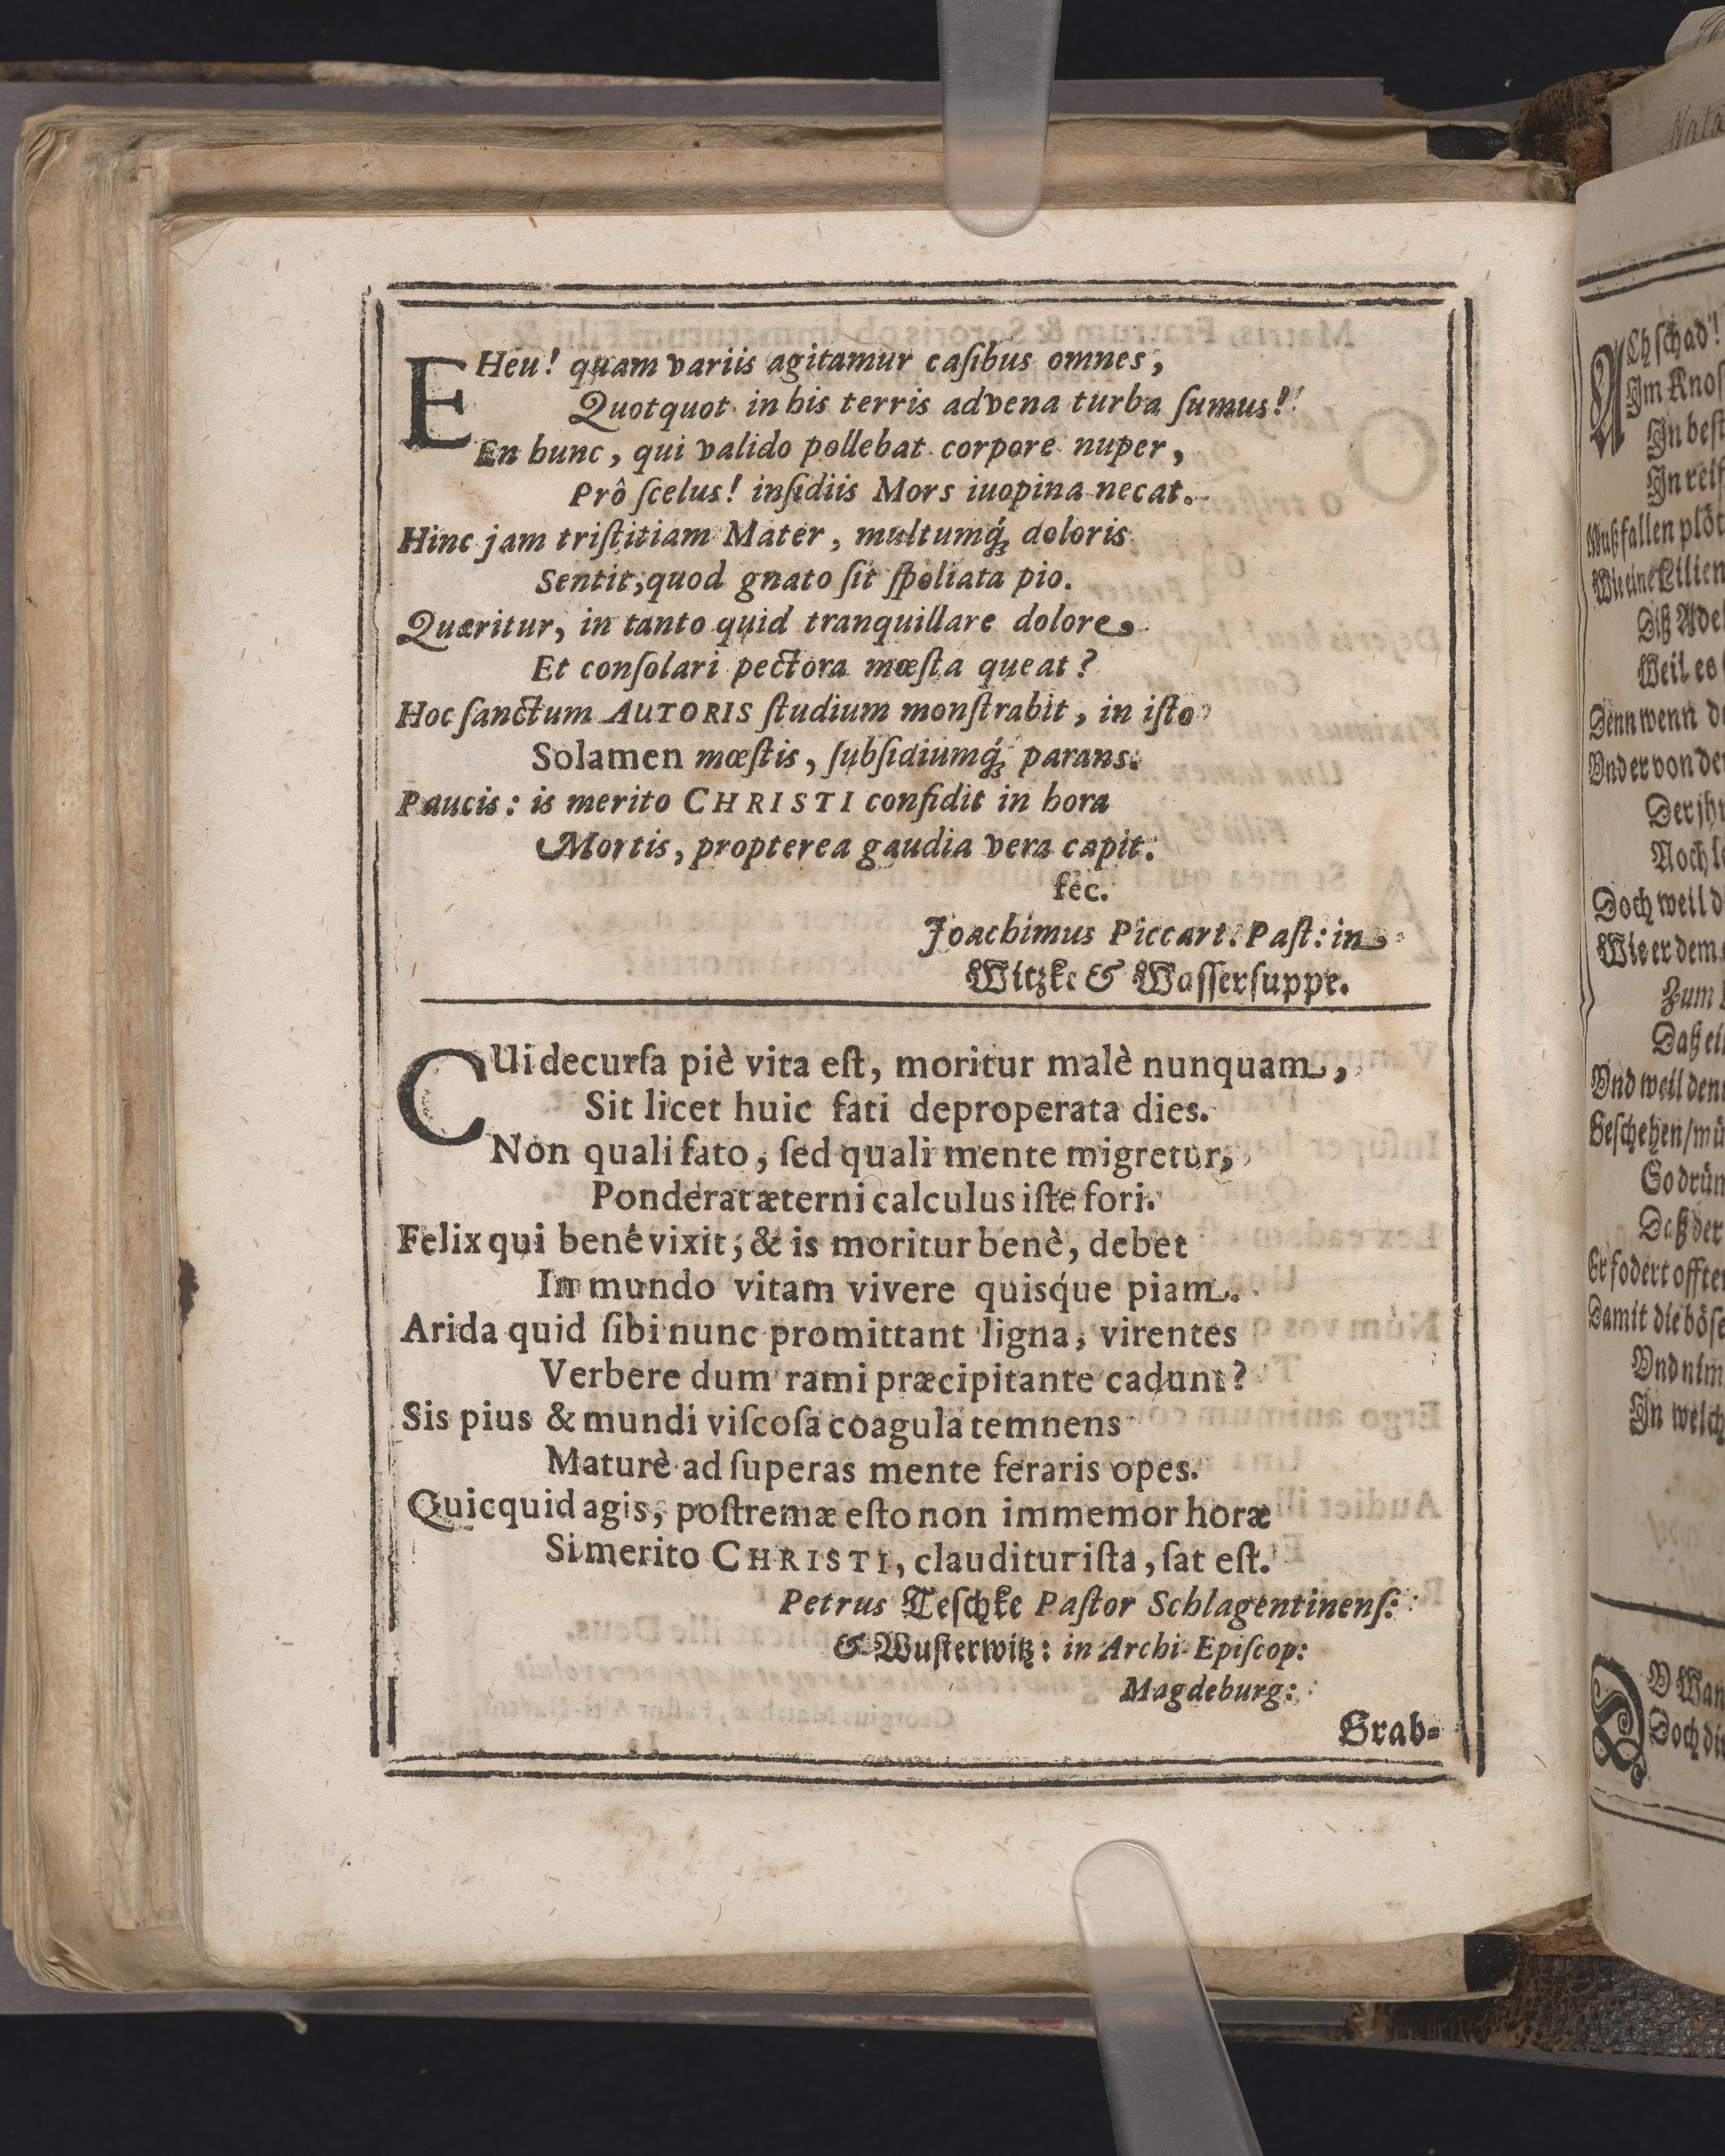 EHeu! quam variis agitamur caſibus omnes,
Quotquot in his terris advena turba ſumus!
En hunc, qui valido pollebat corpore nuper,
Prô ſcelus! inſidiis Mors iuopina necat.
Hinc jam triſtitiam Mater, multumq́; doloris
Sentit, quod gnato ſit ſpoliata pio.
Quæritur, in tanto quid tranquillare dolore,
Et conſolari pectora mœſta queat?
Hoc ſanctum AUTORIS ſtudium monſtrabit, in iſto
Solamen mœſtis, ſubſidiumq́; parans.
Paucis: is merito CHRISTI confidit in hora
Mortis, propterea gaudia vera capit.
fec.
Joachimus Piccart. Paſt: in
Witzke & Waſſerſuppe.
CUi decurſa piè vita eſt, moritur malè nunquam,
Sit licet huic fati deproperata dies.
Non quali fato, ſed quali mente migretur,
Ponderat æterni calculus iſte fori.
Felix qui benè vixit; & is moritur benè, debet
In mundo vitam vivere quisq́ue piam.
Arida quid ſibi nunc promittant ligna, virentes
Verbere dum rami præcipitante cadunt?
Sis pius & mundi viſcoſa coagula temnens
Maturè ad ſuperas mente feraris opes.
Quicquid agis, poſtremæ eſto non immemor horæ
Si merito CHRISTI, clauditur iſta, ſat eſt.
Petrus Teſchke Paſtor Schlagentinenſ:
& Wuſterwitz: in Archi-Epiſcop:
Magdeburg:
Grab-
ACh ſchad'!
Im
In
In
Muß fallen
Wie eine Lilien
Diß
Weil es
Denn wenn
Vnd er von
Der
Noch
Doch weil
Wie er dem
Zum
Daß
Vnd weil
Geſchehen/
So
Daß der
Er fodert
Damit die
Vnd
In
DV
Doch